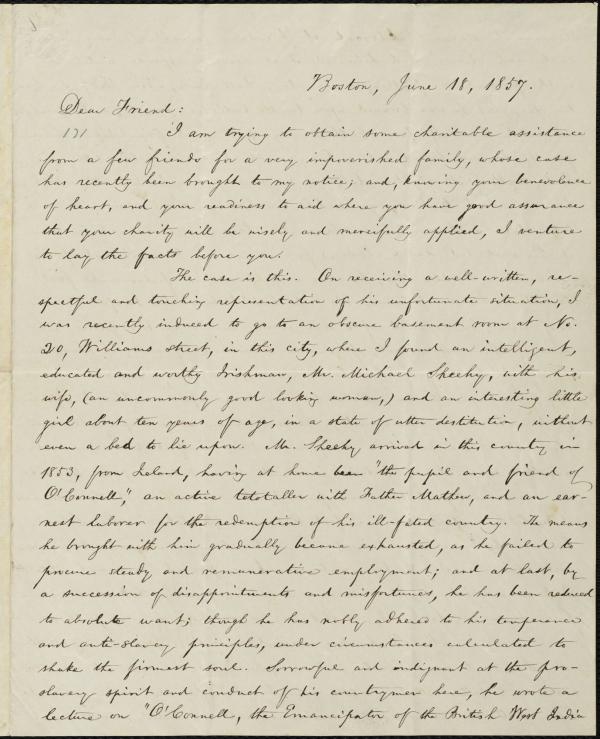 Boston, June 18, 1857.
Dear Friend:
121 I am trying to obtain some charitable assistance
from a few friends for a very impoverished family, whose case
has recently been brought to my notice; and, knowing your benevolence
of heart, and your readiness to aid where you have good assurance
that your charity will be wisely and mercifully applied, I venture
to lay the facts before you.
The case is this. On receiving a well-written, re-
spectful and touching representation of his unfortunate situation, I
was recently induced to go to an obscure basement room at No.
20, Williams street, in this city, where I found an intelligent,
educated and worthy Irishman, Mr. Michael Sheehy, with his
wife, (an uncommonly good looking woman,) and an interesting little
girl about ten years of age, in a state of utter destitution, without
even a bed to lie upon. Mr. Sheehy arrived in this country in
1853, from Ireland, having at home been "the pupil and friend of
O'Connell," an active tetotaller with Father Mathew, and an ear-
nest laborer for the redemption of his ill-fated country. The means
he brought with him gradually became exhausted, as he failed to
procure steady and remunerative employment; and at last, by
a succession of disappointments and misfortunes, he has been reduced
to absolute want; though he has nobly adhered to his temperance
and anti-slavery principles, under circumstances calculated to
shake the firmest soul. Sorrowful and indignant at the pro-
slavery spirit and conduct of his countrymen here, he wrote a
lecture on "O'Connell, the Emancipator of the British West India